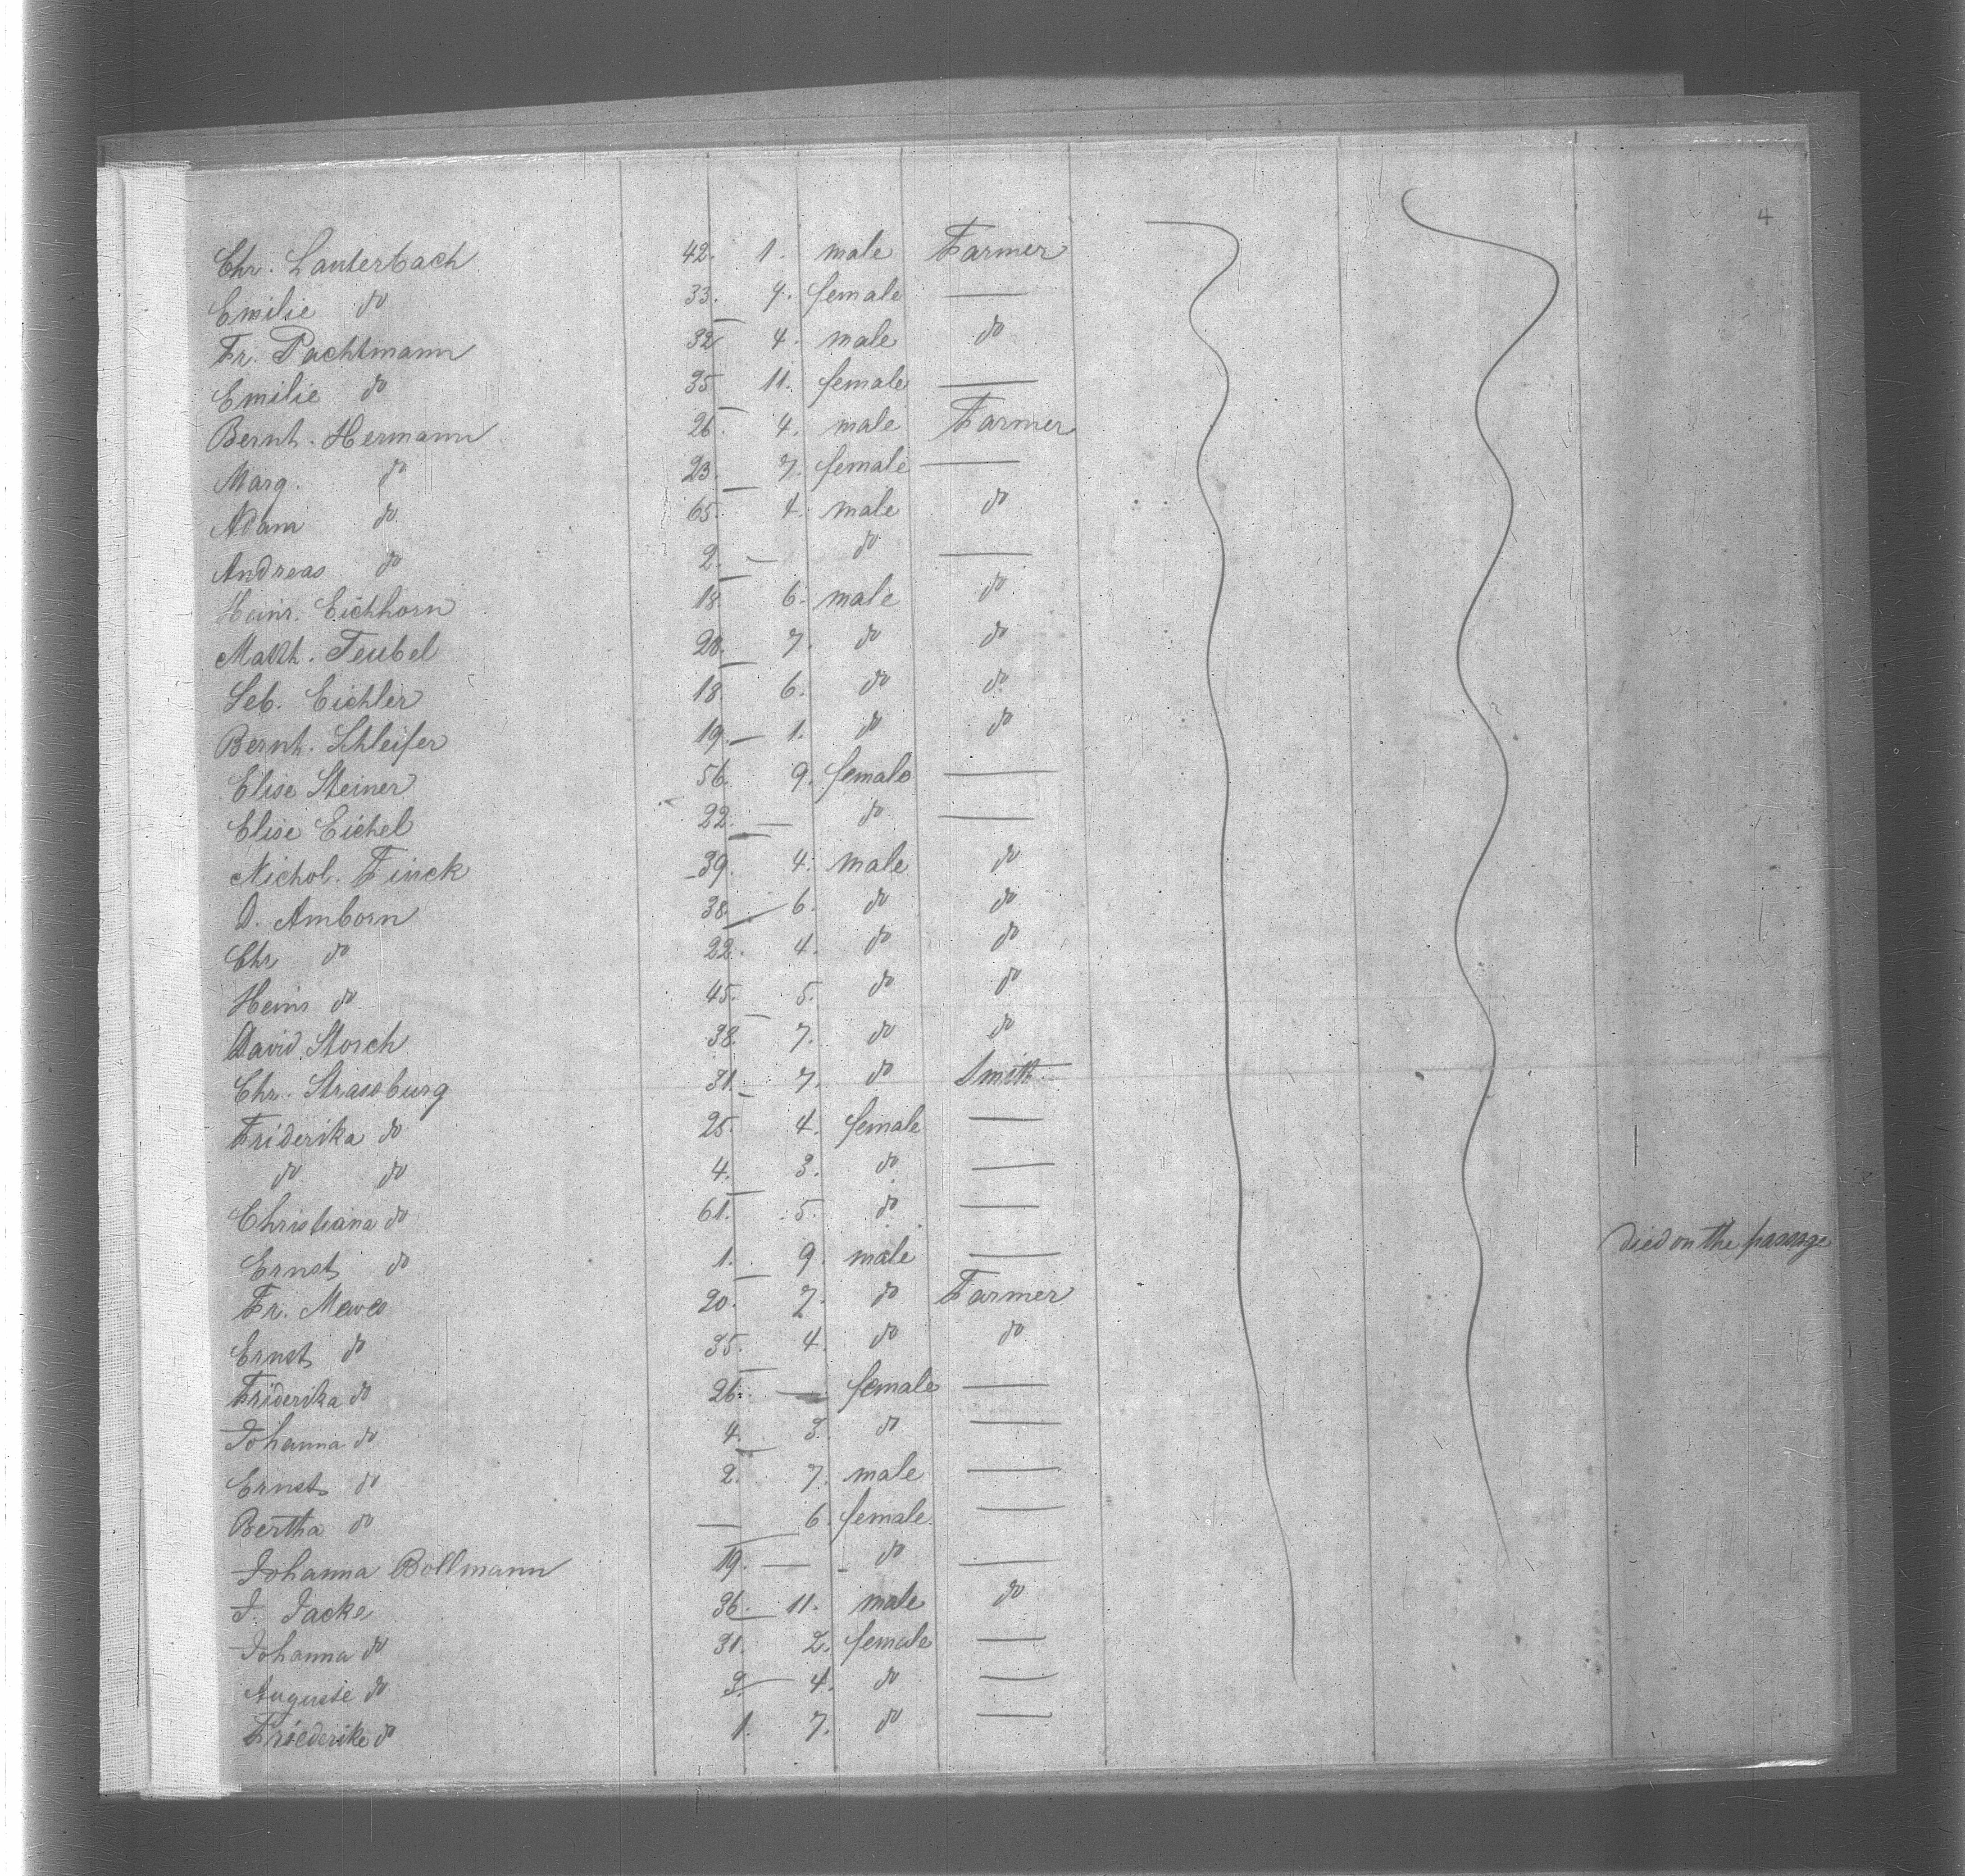 4
Chr. Lauterbach 42. 1. male Farmer
Emilie do 33. 9. female —
Fr. Pachtmann 32 4. male do
Emilie do 35 11. female —
Bernh. Hermann 26. 4. male Farmer
Marg. do 23. 7. female —
Adam do 65. 4. male do
Andreas do 2. — do —
Heinr. Eichhorn 18 6. male do
Matth. Teubel 28. 7. do do
Seb. Eichler 18 6. do do
Bernh. Schleifer 19. 1. do do
Elise Steiner 56. 9. female —
Elise Eichel 22. — do —
Nichol. Finck 39. 4. male do
D. Amborn 38. 6. do do
Chr do 22. 4. do do
Heinr do 45. 5. do do
David Storch 38. 7. do do
Chr. Strassburg 31. 7. do Smith
Friderika do 25. 4. female —
do do 4. 3. do —
Christiana do 61. 5. do —
Ernst do 1. 9. male — Died on the passage
Fr. Mewes 20. 7. do Farmer
Ernst do 35. 4. do do
Friderika do 26. — female —
Johanna do 4. 3. do —
Ernst do 2. 7. male —
Bertha do — 6. female —
Johanna Bollmann 19. — do —
J. Jacke 36. 11. male do
Johanna do 31. 2. female —
Auguste do 3. 4. do —
Friederike do 1. 7. do —